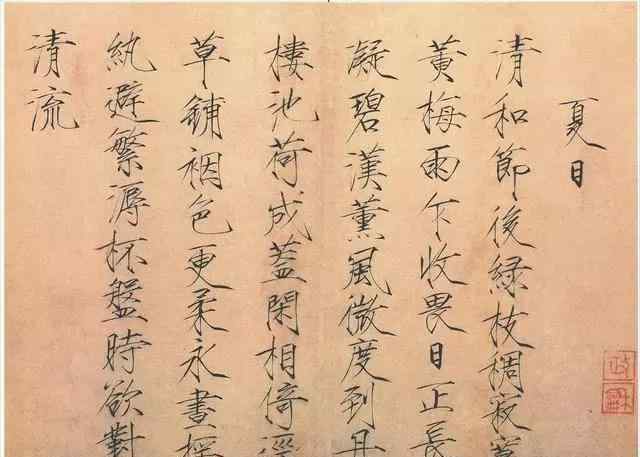 夏日
清和節後緑枝稠寂寞
黃梅雨乍收畏日正長
凝碧漢薰風微度到丹
樓池荷成蓋閑相倚徑
草鋪裀色更柔永晝搖
紈避繁溽杯盤時欲對
清流
政龢